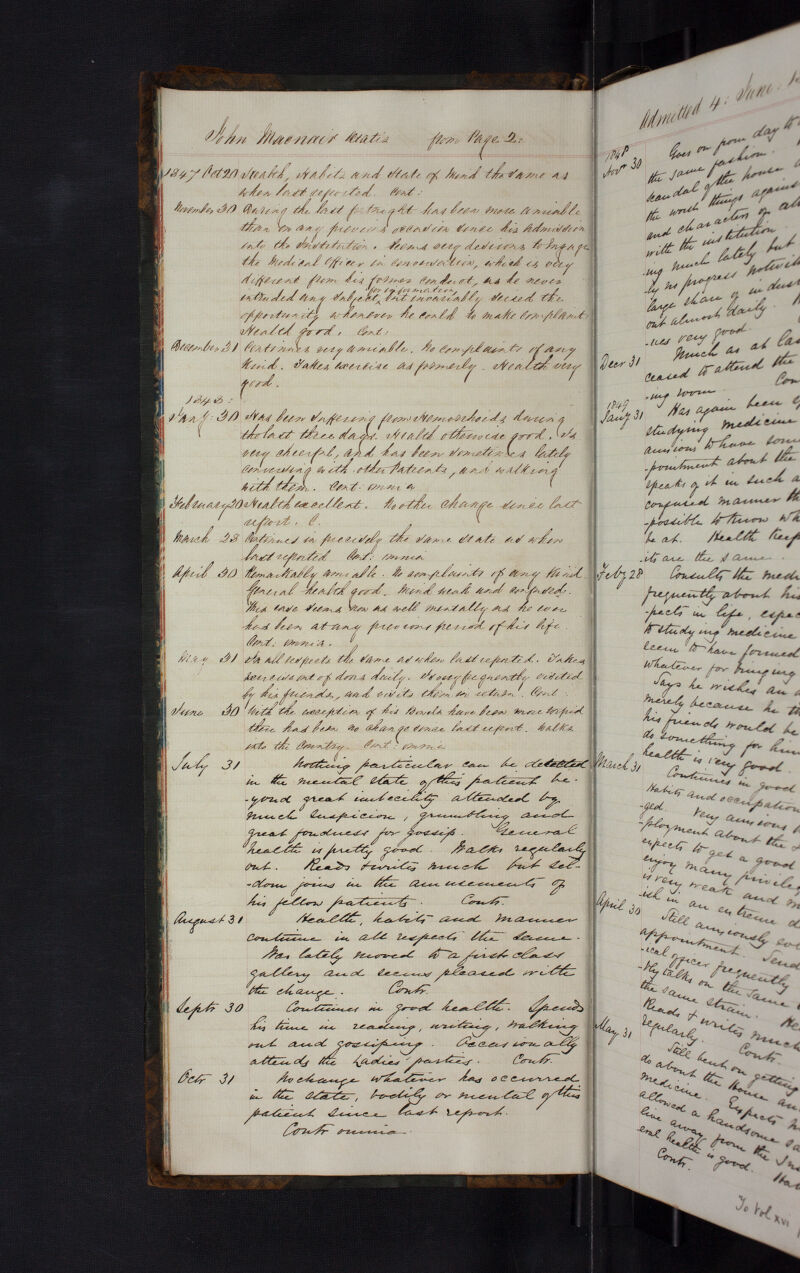 John Macnair Aetatis from Page 2:
1847 Octr 20 Health, Habits and State of Mind the same as
when last reported. Cont:
November 30 During the last fortnight has been more amiable
than on any previous occasion since his Admission
into the Institution. Seems very desirous to engage
the Medical Officer in conversation, which is very
different from his former conduct, as he never
for information
intruded any subject, but invariably seized the
opportunity whenever he could to make complaint
Health good. Cont:
December 31 Continues very amiable. No complaints of any
kind. Takes exercise as formerly. Health very
good.
1848:
Jany: 30 Has been suffering from Hemorrhoids during
the last three days. Health otherwise good. Is
very cheerful, and has been sometimes lately
conversing with other Patients, and walking
with them. Cont: omnia
February 20 Health excellent. No other change since last
report. C.
March 23 Continues in precisely the same state as when
last reported Cont: omnia
April 30 Remarkably amiable. No complaints of any kind
General health good. Mind weak and confused.
This case seems now as well mentally as he ever
has been at any previous period of his life.
Cont: omnia.
May 31 In all respects the same as when last reported. Takes
exercise out of doors daily. Is very frequently visited
by his friends, and visits them in return. Cont:
June 30 With the exception of his Bowels have been more torpid
there has been no change since last report. Walks
into the Country. Cont: omnia
July 31 Nothing particular can be detected
in the mental state of this patient be-
-yond great imbecility attended by
much suspicion, grumbling and
great fondness for gossip. General
health is pretty good. Walks regularly
out. Reads & writes much but sel-
-dom joins in the amusements of
his fellow patients. Contr.
August 31 Health, habits and manner
continue in all respects the same.
Was lately moved to a first class
gallery and seems pleased with
the change. Contr.
Septr 30 Continues in good health. Spends
his time in reading, writing, walking
out and gossiping. Occasionally
attends the Ladies' parties. Contr.
Octr 31 No change whatever has occurred
in the state, bodily or mental of this
patient since last report.
Contr omnia
Admitted 4: June
1848
Novr 30 Goes on from day to
the same fashion.
scandal of the house
the worst things agains
and characters of all
with the institution.
-ing much lately but
-ly no progress notwith
large share of indust
out almost daily.
-ues very good
Decr 31 Much as at las
ceased to attend the
-ing room. Con
1849
Jany 31 Has again been
studying medicine
anxious to have some
-pointment about the
speaks of it in such a
confused manner th
-possible to know wh
be at. Health keep
its are the same.
Feby 28 Consults the medi
frequently about his
-pects in life, espec
to studying medicine
seem to have formed
whatever for bringing
Says he wishes an a
merely because he th
his friends would be
do something for him
health is very good.
March 31 Continues in good
Habits and occupation
-ged. Very anxious
-ployment about the
expects to get a good
enjoy many privileg
is very weak and
-ish in an extreme d
April 30 Still anxiously
appointment. Send
-ical officer frequently
-tly talks on the same
the same strain. He
Reads & writes much
regularly. Contr.
May 31 Still bent on getting
do about the House an
medicine. Expects
allowed a handsome sa
live away from the Ins
eral health is good.
Contr.
To Vol xvi